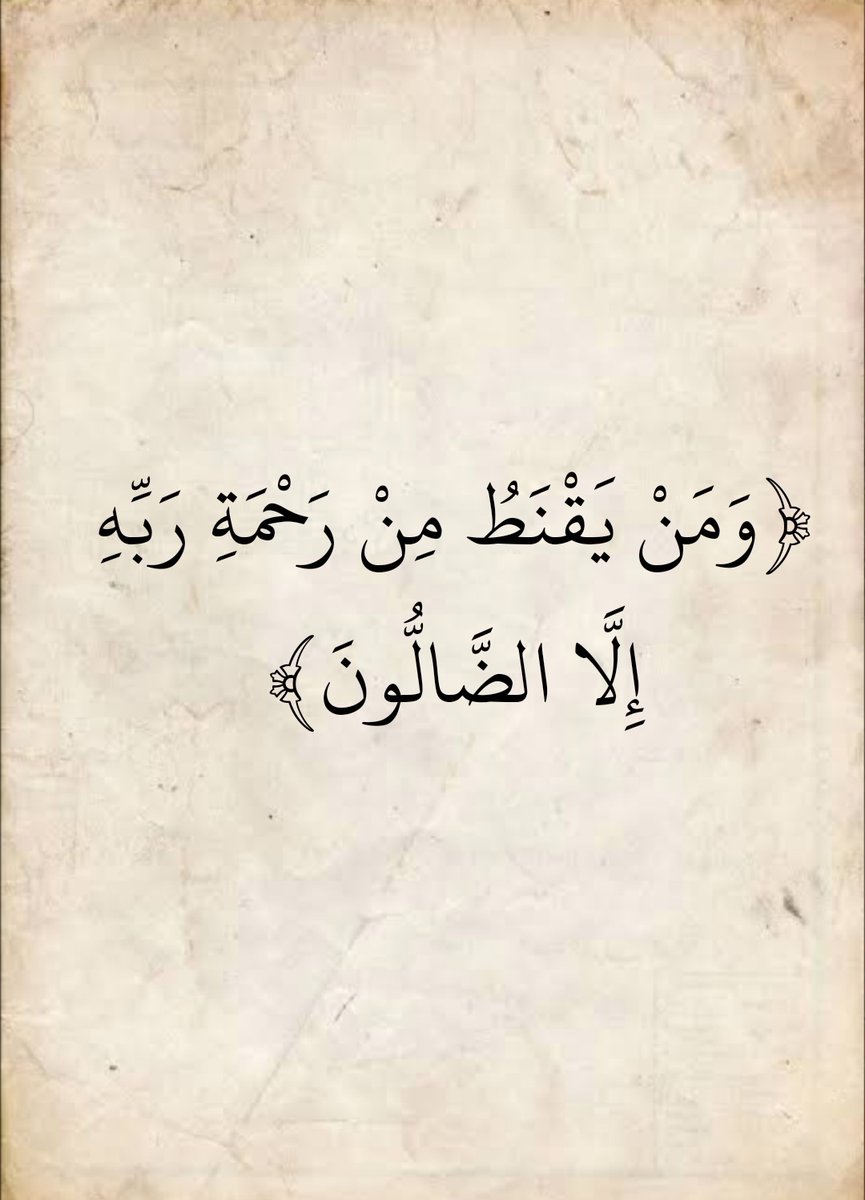 ﴿وَمَنْ يَقْنَطُ مِنْ رَحْمَةِ رَبِّهِ
إِلَّا الضَّالُّونَ﴾